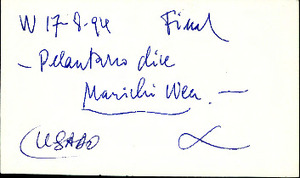 W 17-8-94 Final
- Pelantaro dice
Marichi Wea. —
(USADO)